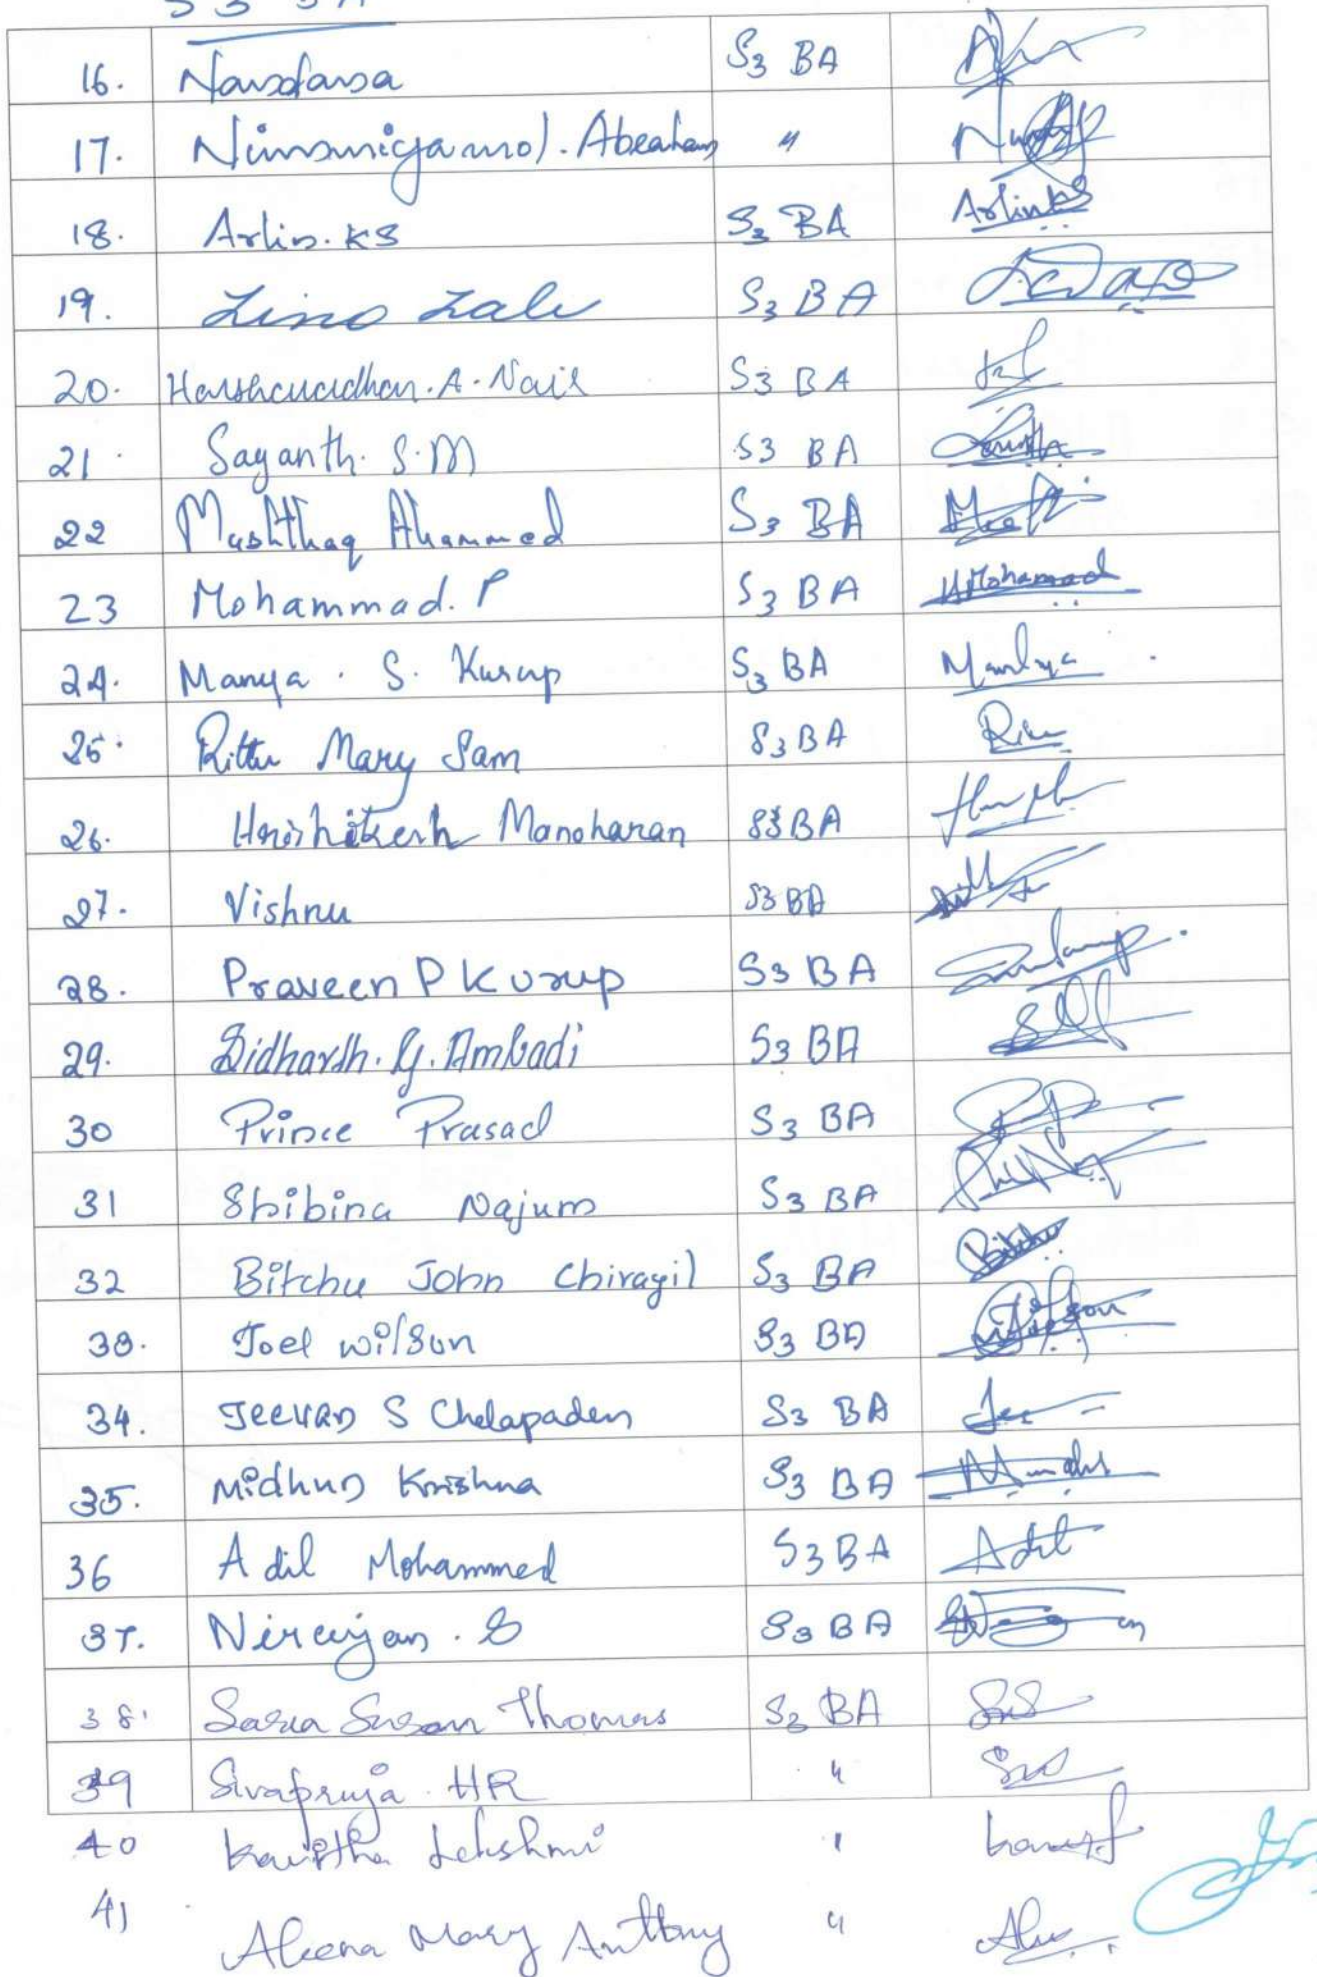 S3 BA
16. Navadarsa S3 BA
17. Nimmigamol. Abraham "
18. Arlin. KS S3 BA Arlin KS
19. Lino Lale S3 BA
20. Harshavardhan. A. Nair S3 BA
21. Sayanth. S. M S3 BA
22 Mushthaq Ahammed S3 BA
23 Mohammad. P S3 BA Mohamad
24. Manya. S. Kurup S3 BA
25. Rittu Mary Sam S3 BA
26. Hrishikesh Manoharan S3 BA
27. Vishnu S3 BA
28. Praveen P Kurup S3 BA
29. Sidharth. G. Ambadi S3 BA
30 Prince Prasad S3 BA
31 Shibina Najum S3 BA
32 Bitchu John Chirayil S3 BA
33. Joel Wilson S3 BA
34. Jeevan S Chelapaden S3 BA
35. Midhun Krishna S3 BA
36 Adil Mohammed S3 BA Adil
37. Niranjan. S S3 BA
38. Sara Susan Thomas S3 BA
39 Sivapruja HR "
40 Kavitha Lekshmi "
41 Aleena Mary Anthony "